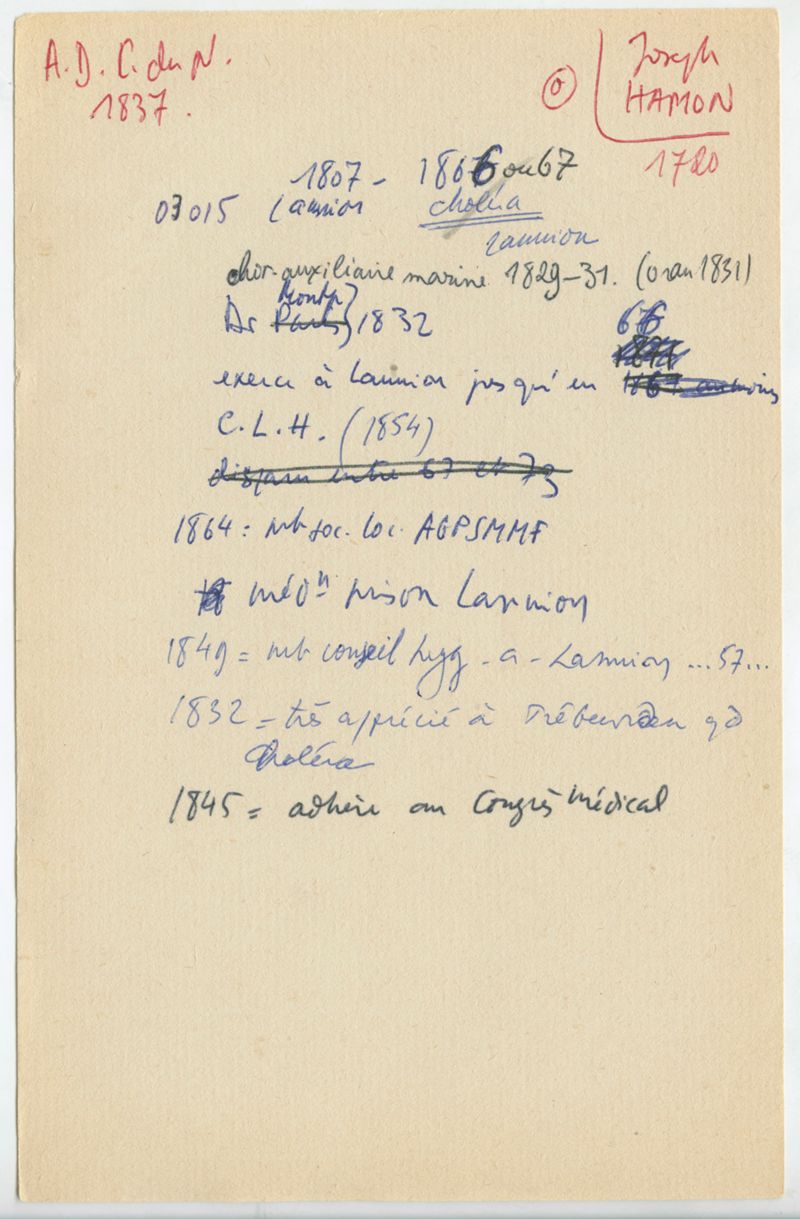 A. D. C. du N.
1837.
Joseph
HAMON
1720
1807 - 1866 ou 67
03015 Lannion choléa
Lannion
chir. auxiliaire marine 1829-31. (Oran 1831)
Montp)
Dr Paris) 1832
66
exerce à Lannion jusqu'en 1867 au moins
C. L. H. (1854)
disparu entre 67 et 73
1864 : mb soc. loc. AGPSMMF
méd^n prison Lannion
1849 = mb conseil hyg. a - Lannion ...57...
1832 = très apprécié à Trébeurden qd
Choléra
1845 = adhère au Congrès Médical